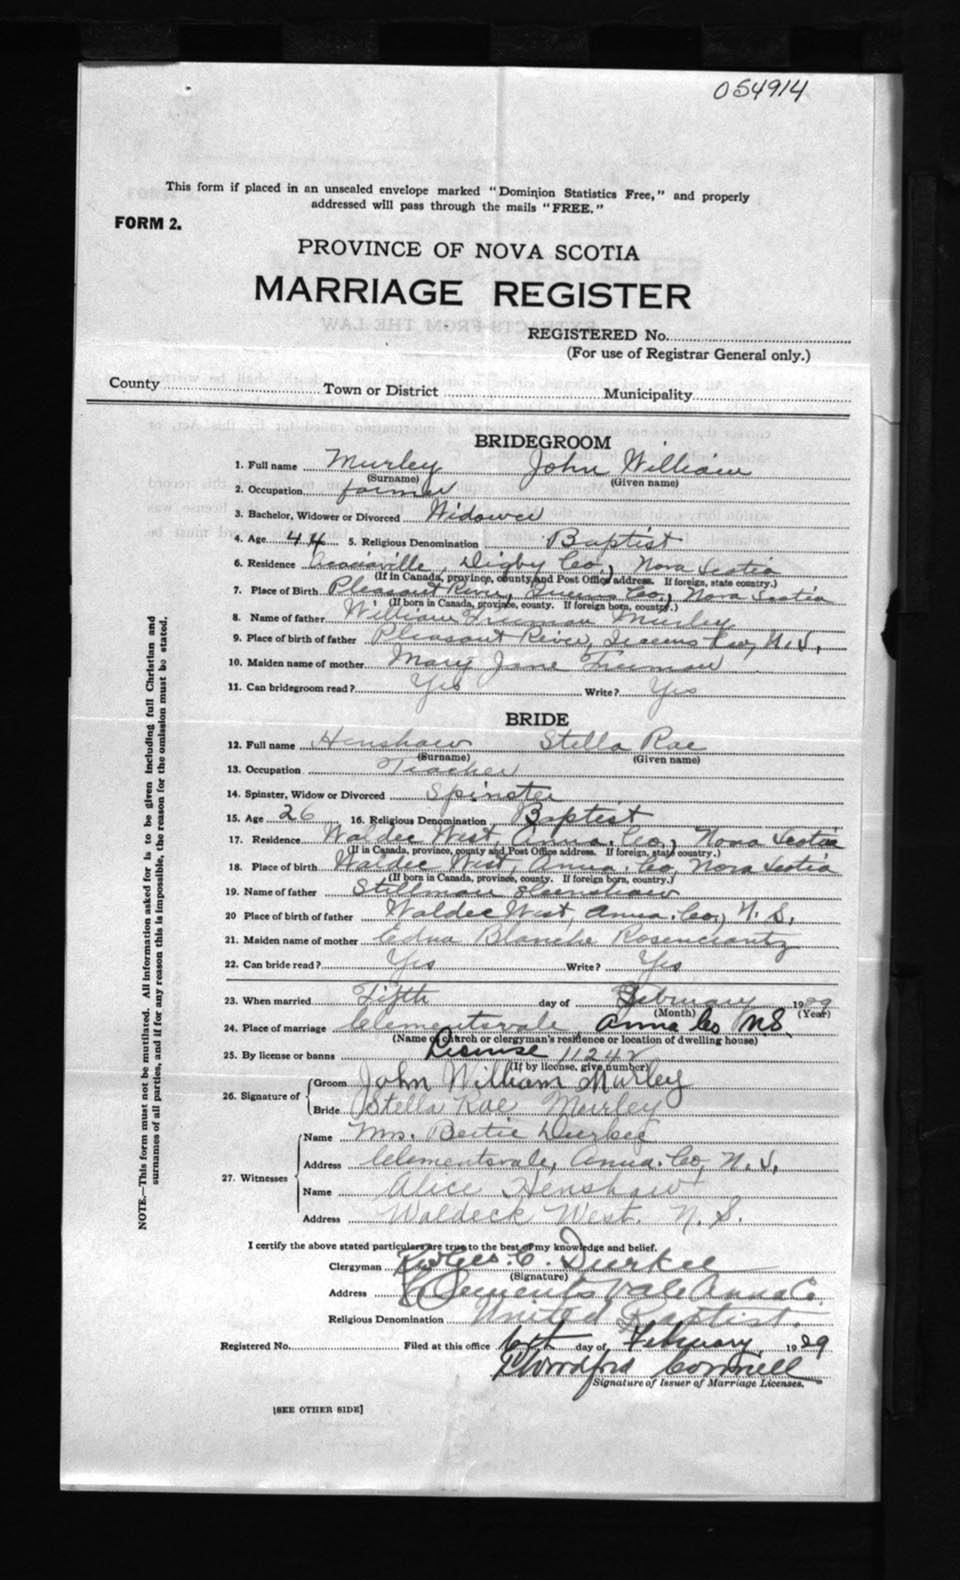 054914
This form if placed in an unsealed envelope marked "Dominion Statistics Free," and properly
addressed will pass through the mails "FREE."
FORM 2.
PROVINCE OF NOVA SCOTIA
MARRIAGE REGISTER
REGISTERED No.
(For use of Registrar General only.)
County Town or District Municipality
BRIDEGROOM
1. Full name Murley John William
(Surname) (Given name)
2. Occupation farmer
3. Bachelor, Widower or Divorced Widower
4. Age 44 5. Religious Denomination Baptist
6. Residence Acaciaville, Digby Co., Nova Scotia
(If in Canada, province, county and Post Office address. If foreign, state country.)
7. Place of Birth Pleasant River, Queens Co., Nova Scotia
(If born in Canada, province, county. If foreign born, country.)
8. Name of father William Freeman Murley
9. Place of birth of father Pleasant River, Queens Co, N.S.
10. Maiden name of mother Mary Jane Freeman
11. Can bridegroom read? Yes Write? Yes
BRIDE
12. Full name Henshaw Stella Rae
(Surname) (Given name)
13. Occupation Teacher
14. Spinster, Widow or Divorced Spinster
15. Age 26 16. Religious Denomination Baptist
17. Residence Waldec West, Anna. Co., Nova Scotia
(If in Canada, province, county and Post Office address. If foreign, state country.)
18. Place of birth Waldec West, Anna Co, Nova Scotia
(If born in Canada, province, county. If foreign born, country.)
19. Name of father Stillman Henshaw
20 Place of birth of father Waldec West, Anna. Co., N. S.
21. Maiden name of mother Edna Blanche Rosencrantz
22. Can bride read? Yes Write? Yes
23. When married Fifth day of February 1929
(Month) (Year)
24. Place of marriage Clementsvale, Anna Co N.S.
(Name of church or clergyman's residence or location of dwelling house)
25. By license or banns License 11242
(If by license, give number)
26. Signature of Groom John William Murley
Bride Stella Rae Murley
27. Witnesses Name Mrs. Bertie Durkee
Address Clementsvale, Anna. Co, N.S.
Name Alice Henshaw
Address Waldeck West. N. S.
I certify the above stated particulars are true to the best of my knowledge and belief.
Clergyman C. Durkee
(Signature)
Address Clements Vale Anna Co.
Religious Denomination United Baptist.
Registered No. Filed at this office 6th day of February 1929
Cornwell
Signature of Issuer of Marriage Licenses.
[SEE OTHER SIDE]
NOTE.—This form must not be mutilated. All information asked for is to be given including full Christian and
surnames of all parties, and if for any reason this is impossible, the reason for the omission must be stated.